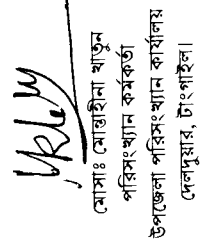 মোসাঃ মোস্তাহীনা খাতুন
পরিসংখ্যান কর্মকর্তা
উপজেলা পরিসংখ্যান কার্যালয়
দেলদুয়ার, টাংগাইল।